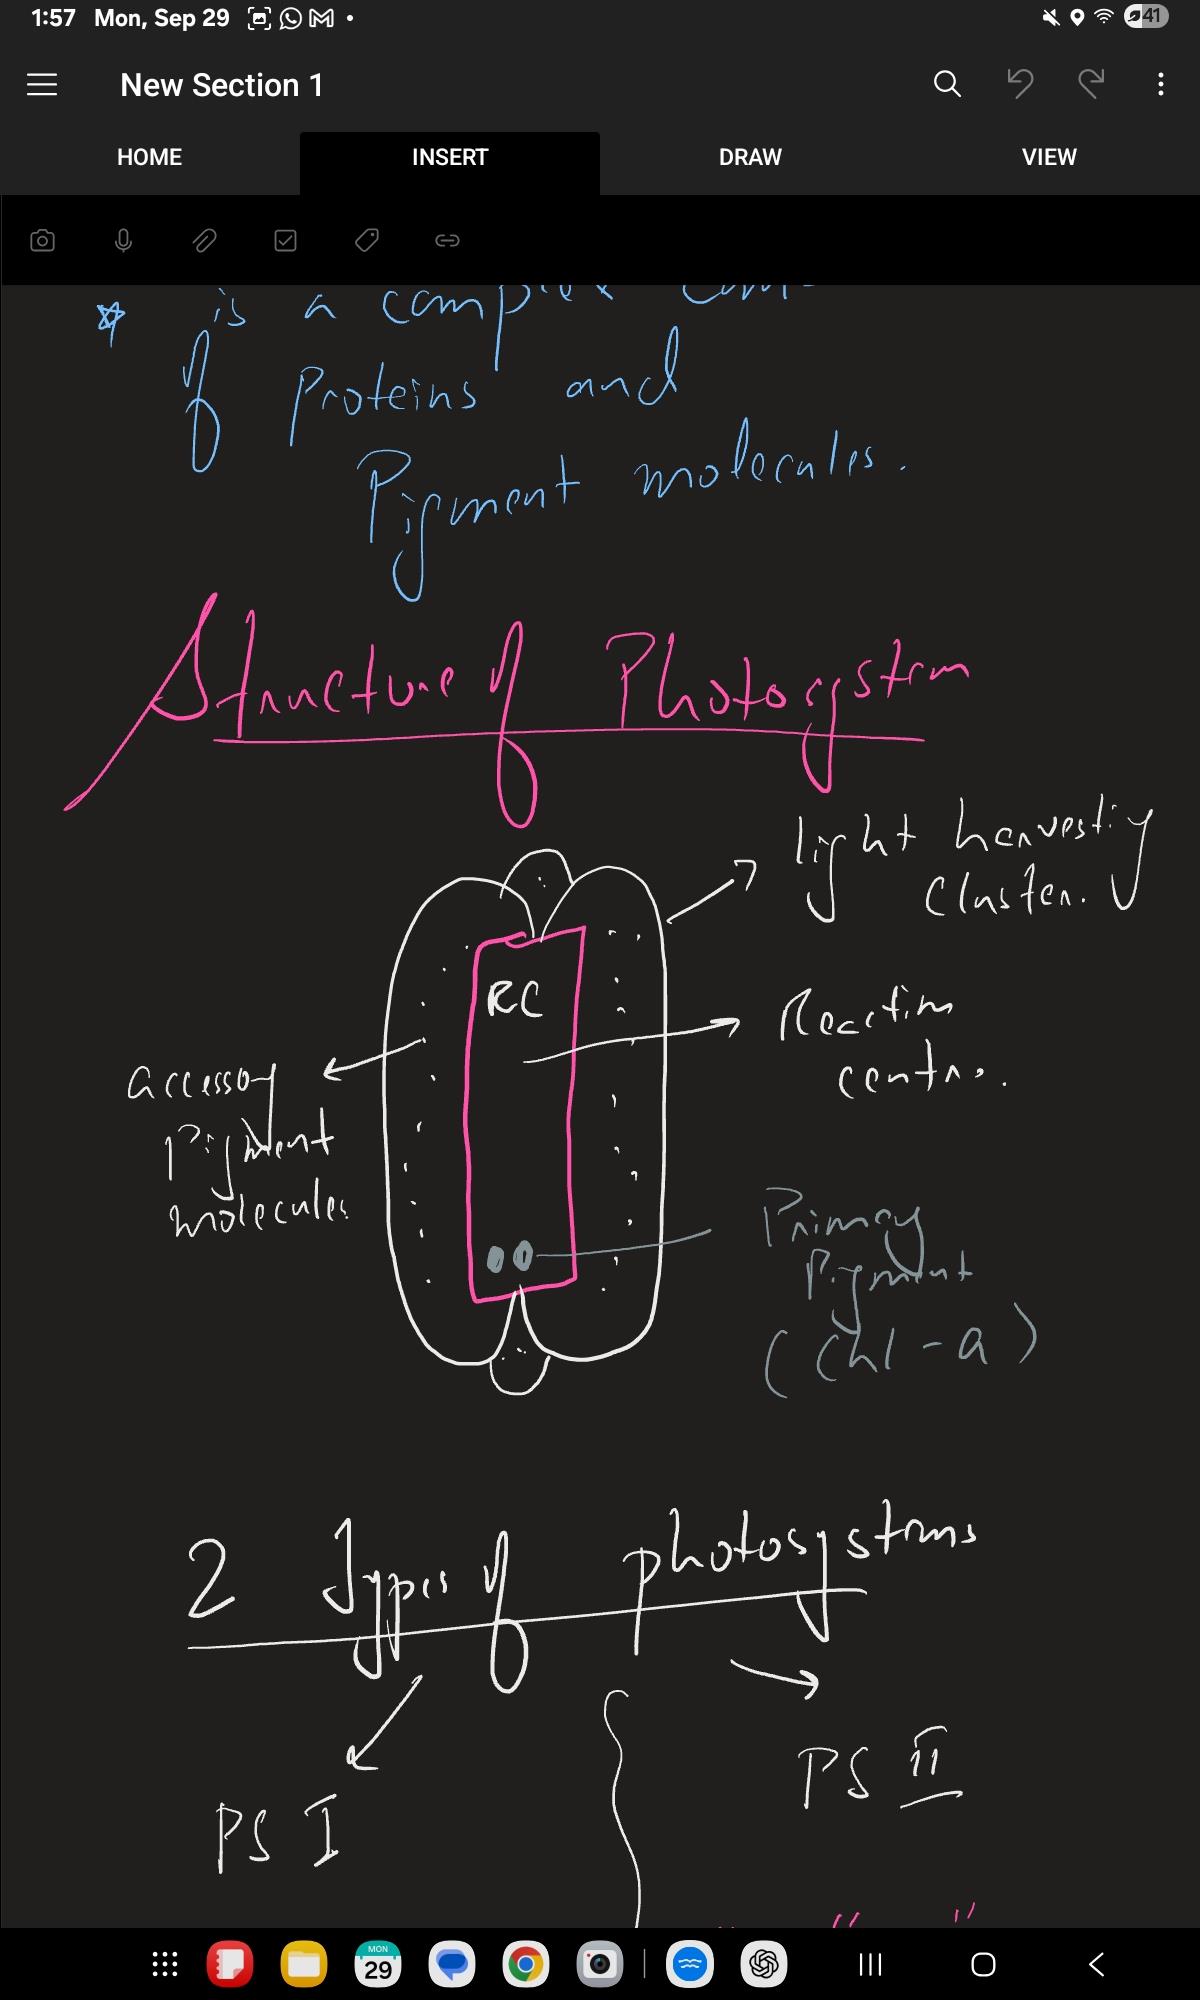 1:57 Mon, Sep 29
41
New Section 1
HOME INSERT DRAW VIEW
* is a complex
of Proteins and
Pigment molecules.
Structure of Photosystem
light harvesting
cluster.
RC
Reaction
centre.
accessory
pigment
molecules
Primary
Pigment
(Chl-a)
2 Types of photosystems
PS I
PS II
MON
29